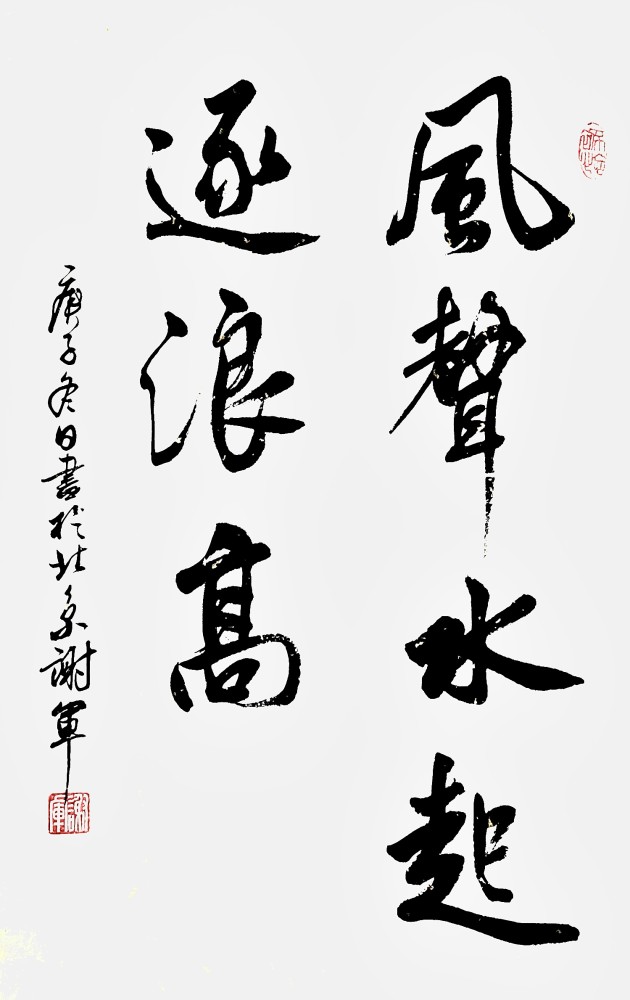 風聲水起
逐浪高
庚子冬日書於北京謝軍
謝軍